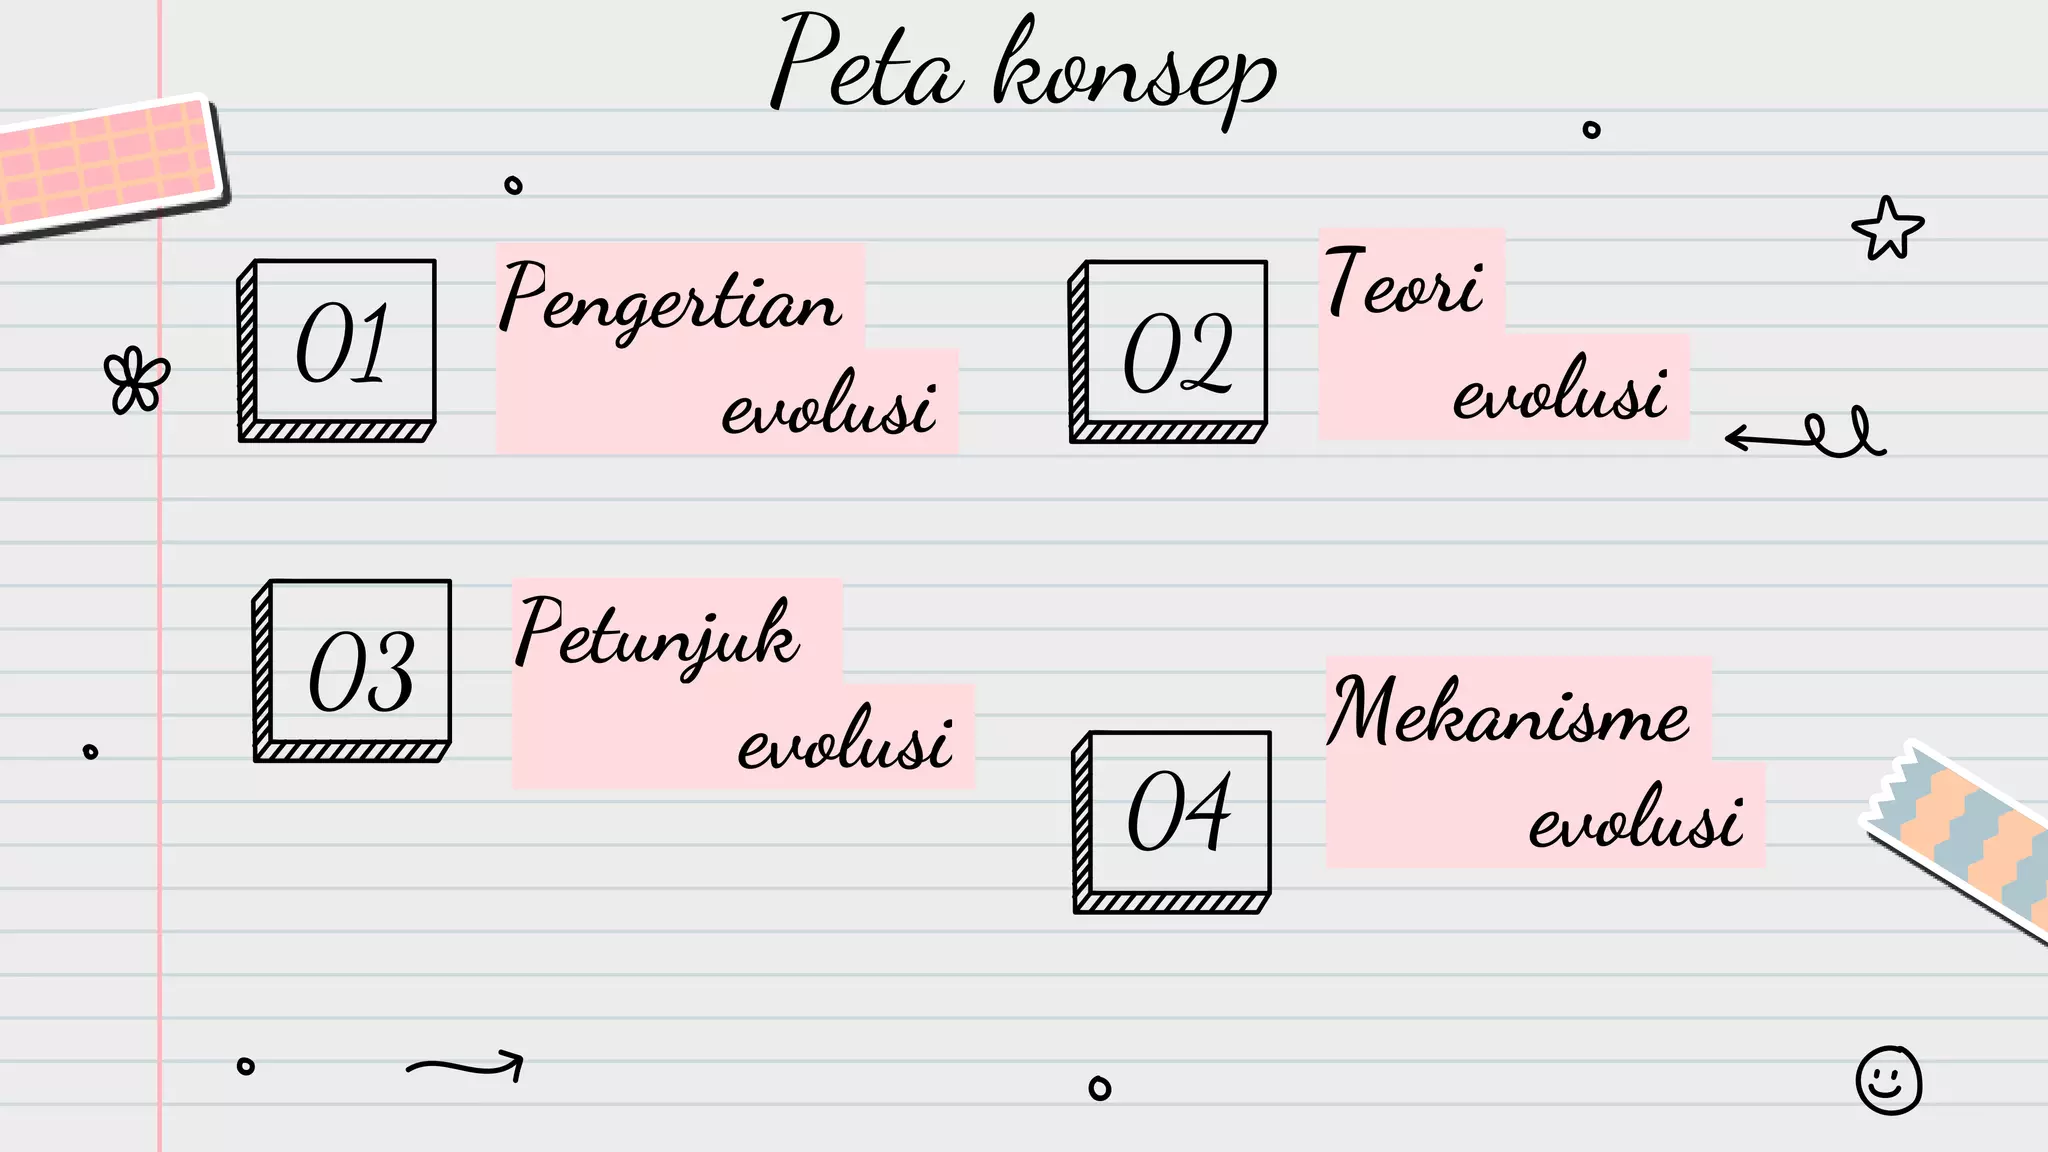 Peta konsep
01
Pengertian
evolusi
02
Teori
evolusi
03
Petunjuk
evolusi
04
Mekanisme
evolusi